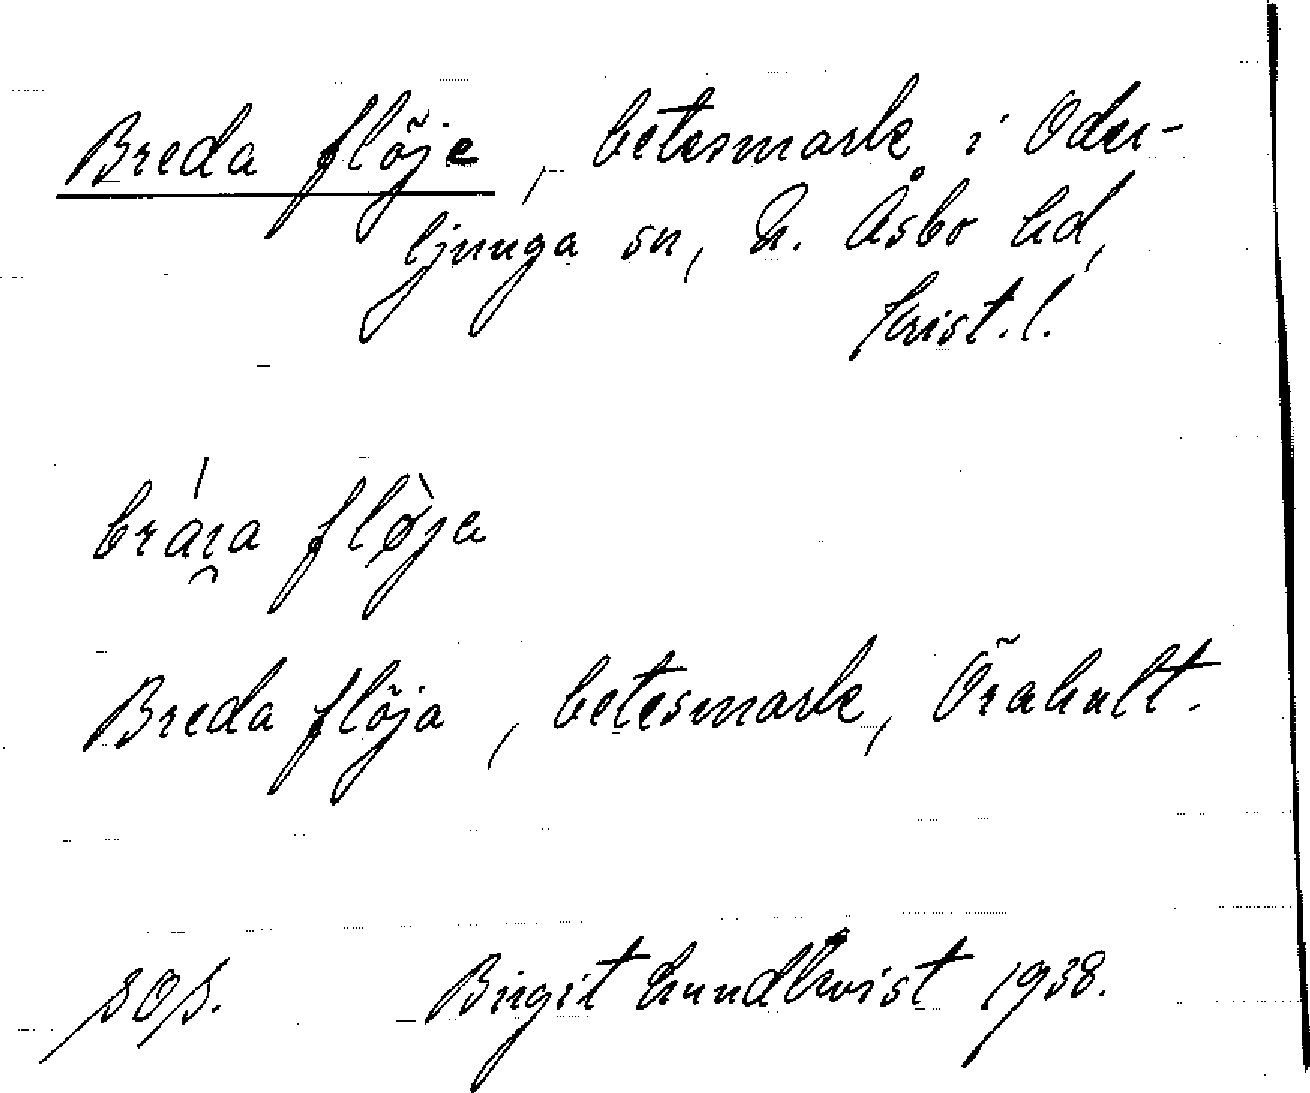 Breda flöje, betesmark i Oder-
ljunga sn, N. Åsbo hd,
Krist. l.
Breda flöja, betesmark, Örahult.
sop. Birgit Lundkvist 1938.